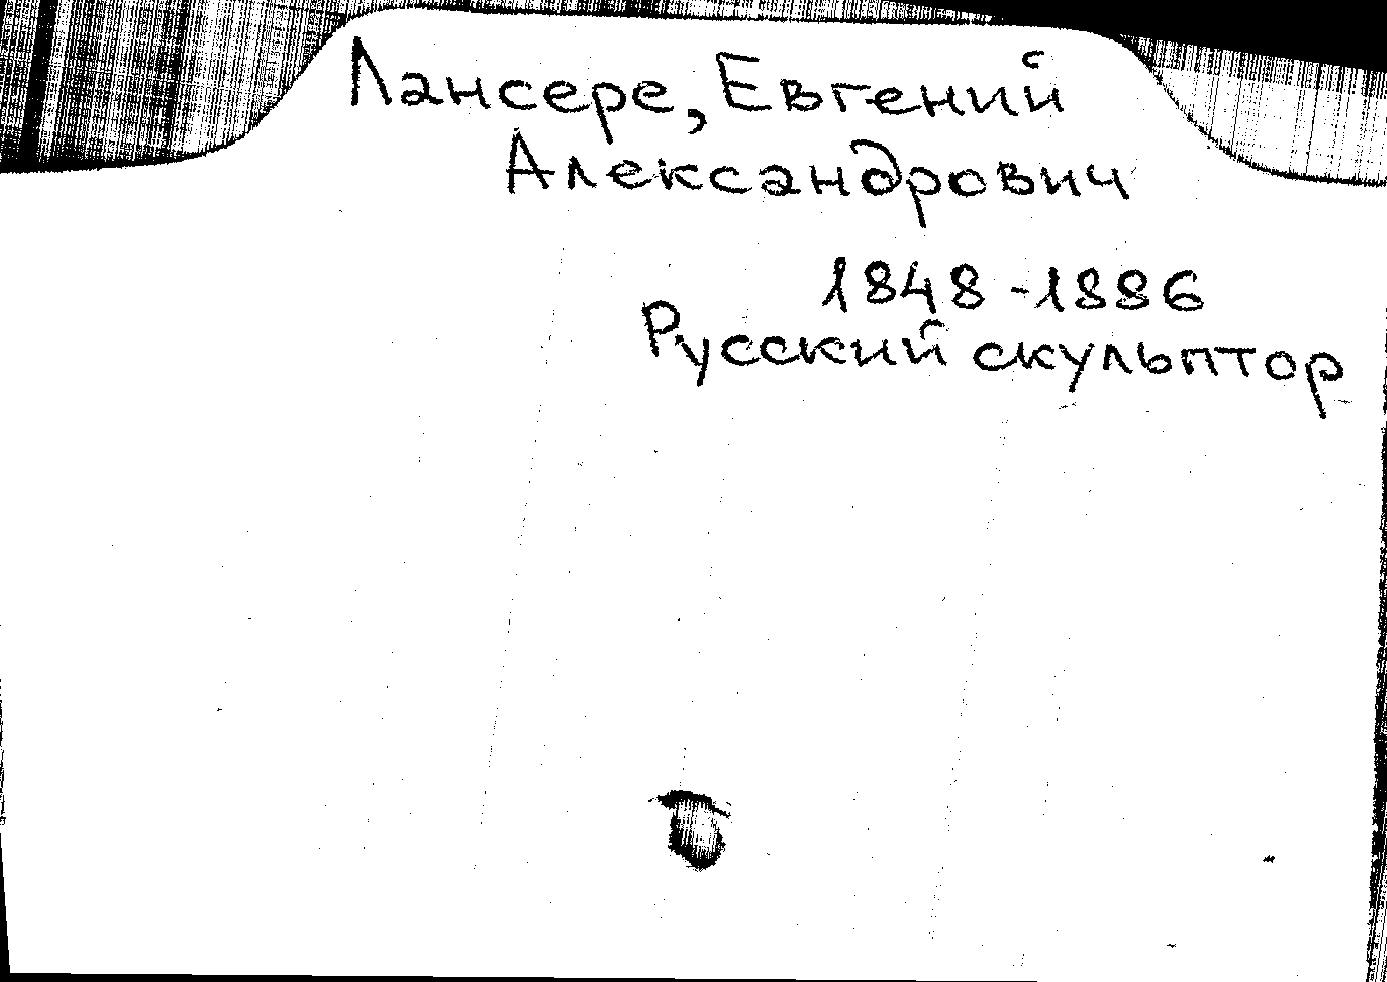 Лансере, Евгений
Александрович
1848-1886
Русский скульптор